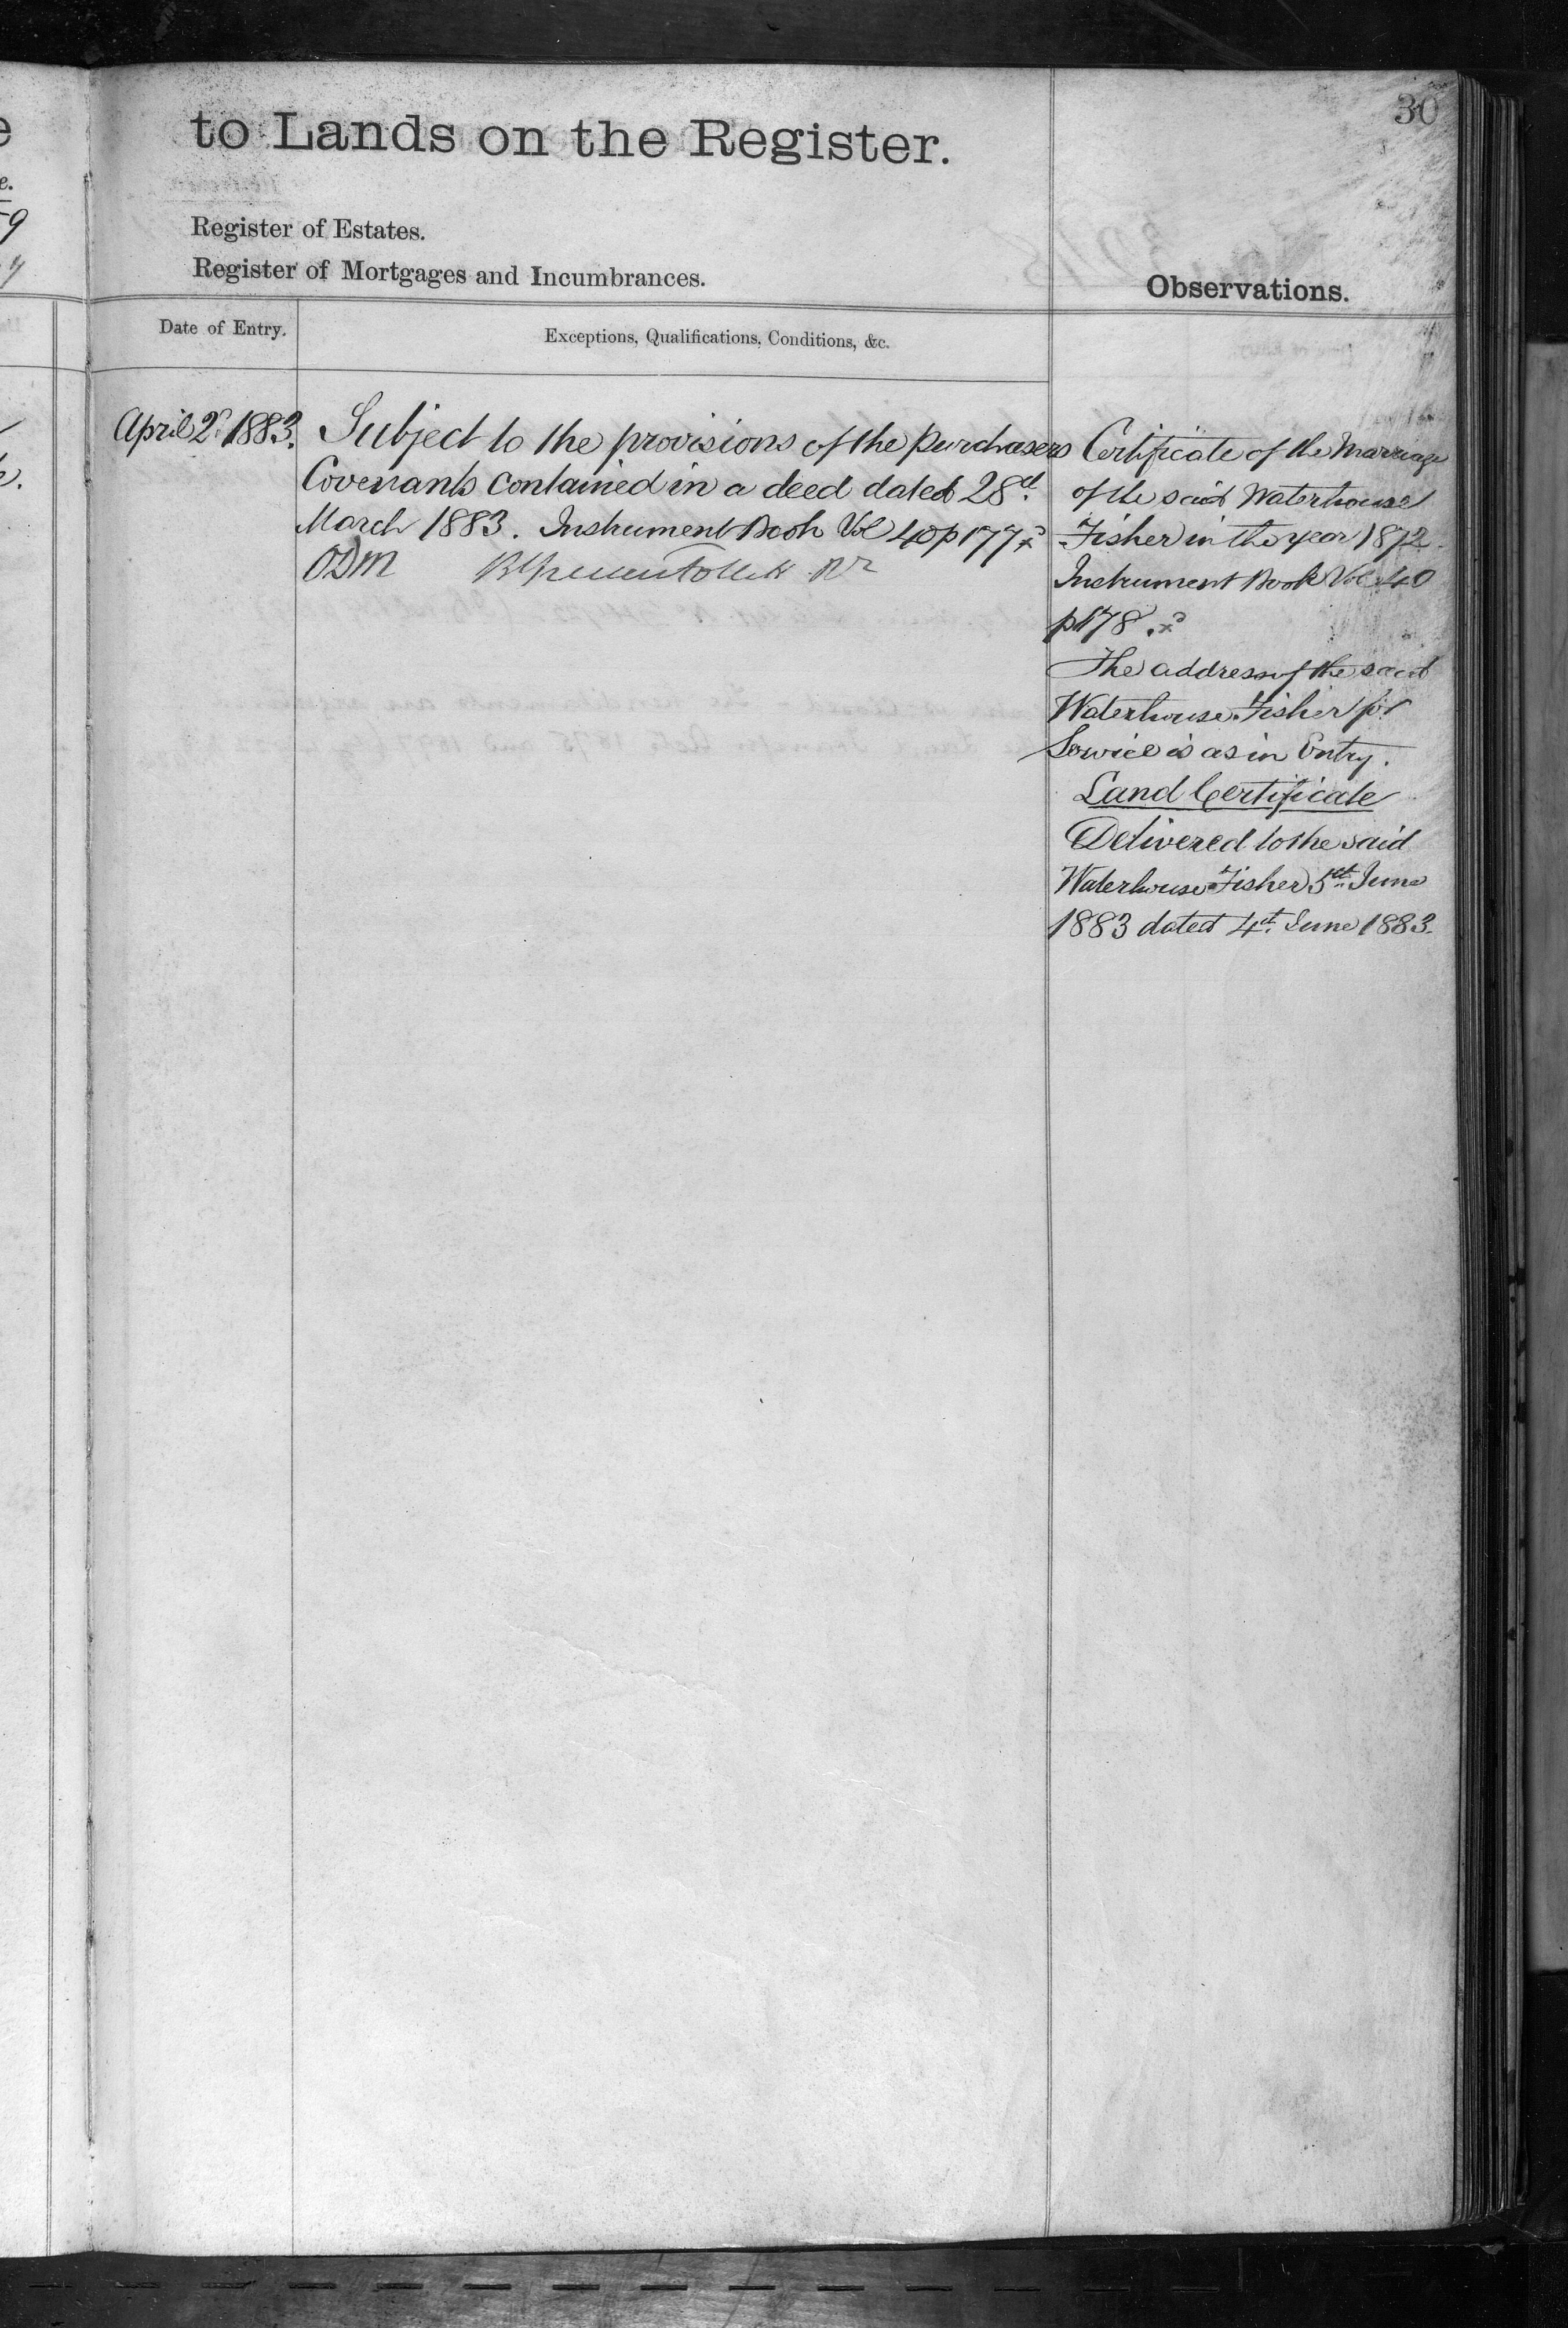 30
to Lands on the Register.
Register of Estates.
Register of Mortgages and Incumbrances.
Observations.
Date of Entry.
Exceptions, Qualifications, Conditions, &c.
April 2d 1883.
Subject to the provisions of the purchasers
Covenants contained in a deed dated 28th
March 1883. Instrument Book Vol 40 p 177
ODM
Certificate of the Marriage
of the said Waterhouse
Fisher in the year 1872
Instrument Book Vol 40
p178.
The address of the said
Waterhouse Fisher for
Service is as in Entry.
Land Certificate
Delivered to the said
Waterhouse Fisher 5th June
1883 dated 4th June 1883.